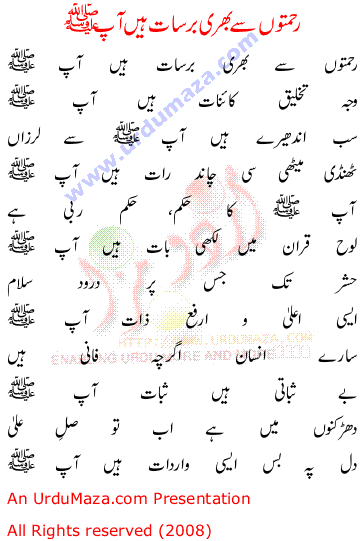 رحمتوں سے بھری برسات ہیں آپ ﷺ
رحمتوں سے بھری برسات ہیں آپ ﷺ
وجہ تخلیق کائنات ہیں آپ ﷺ
سب اندھیرے ہیں آپ ﷺ سے لرزاں
ٹھنڈی میٹھی سی چاند رات ہیں آپ ﷺ
آپ ﷺ کا حکم، حکم ربی ہے
لوح قرآن میں لکھی بات ہیں آپ ﷺ
حشر تک جس پر درود سلام
ایسی اعلیٰ و ارفع ذات آپ ﷺ
سارے انسان اگرچہ فانی ہیں
بے ثباتی ہیں ثبات آپ ﷺ
دھڑکنوں میں ہے اب تو صلِ علیٰ
دل پہ بس ایسی واردات ہیں آپ ﷺ
www.urdumaza.com
اردو مزا
HTTP://WWW.URDUMAZA.COM
ENABLING URDU, MORE AND MORE
An UrduMaza.com Presentation
All Rights reserved (2008)